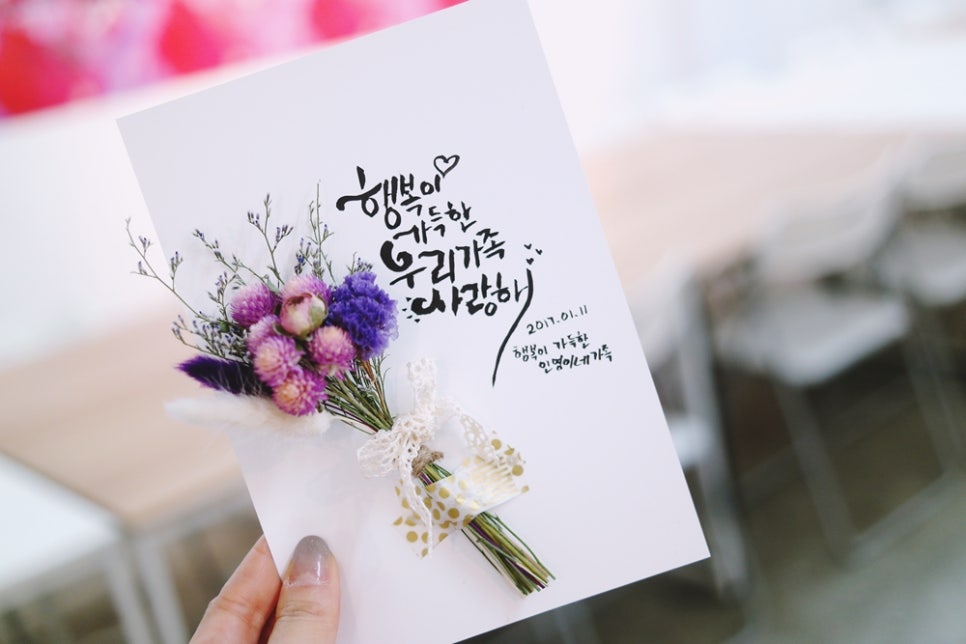 행복이
가득한
우리가족
사랑해
2017.01.11
행복이 가득한
인영이네가족